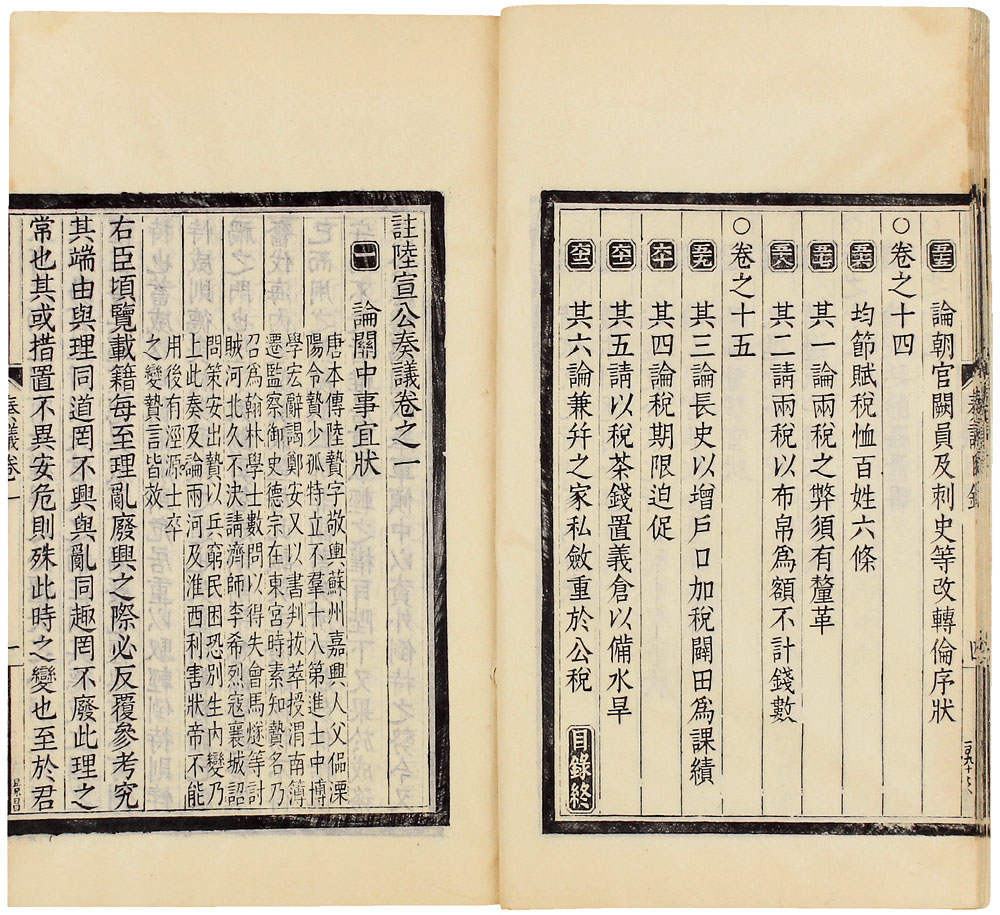 五十五 論朝官闕員及刺史等改轉倫序狀
○卷之十四
五十六 均節賦稅恤百姓六條
五十七 其一論兩稅之弊須有釐革
五十八 其二請兩稅以布帛爲額不計錢數
○卷之十五
五十九 其三論長吏以增戶口加稅闢田爲課績
六十 其四論稅期限迫促
六十一 其五請以稅茶錢置義倉以備水旱
六十二 其六論兼并之家私斂重於公稅
目錄終
註陸宣公奏議卷之一
一 論關中事宜狀
唐本傳陸贄字敬輿蘇州嘉興人父偘溧
陽令贄少孤特立不羣十八第進士中博
學宏辭謁鄭安又以書判拔萃授渭南簿
遷監察御史德宗在東宮時素知贄名乃
召爲翰林學士數問以得失會馬燧等討
賊河北久不決請濟師李希烈寇襄城詔
問策安出贄以兵窮民困恐別生內變乃
上此奏及論兩河及淮西利害狀帝不能
用後有涇源士卒
之變贄言皆效
右臣頃覽載籍每至理亂廢興之際必反覆參考究
其端由與理同道罔不興與亂同趣罔不廢此理之
常也其或措置不異安危則殊此時之變也至於君
奏議卷一
一